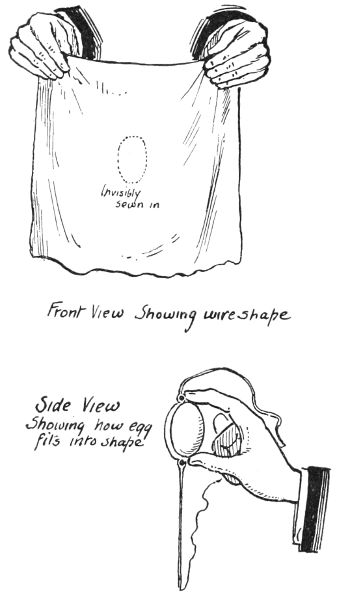 Invisibly
sewn in
Front View Showing wire shape
Side View
Showing how egg
fits into shape